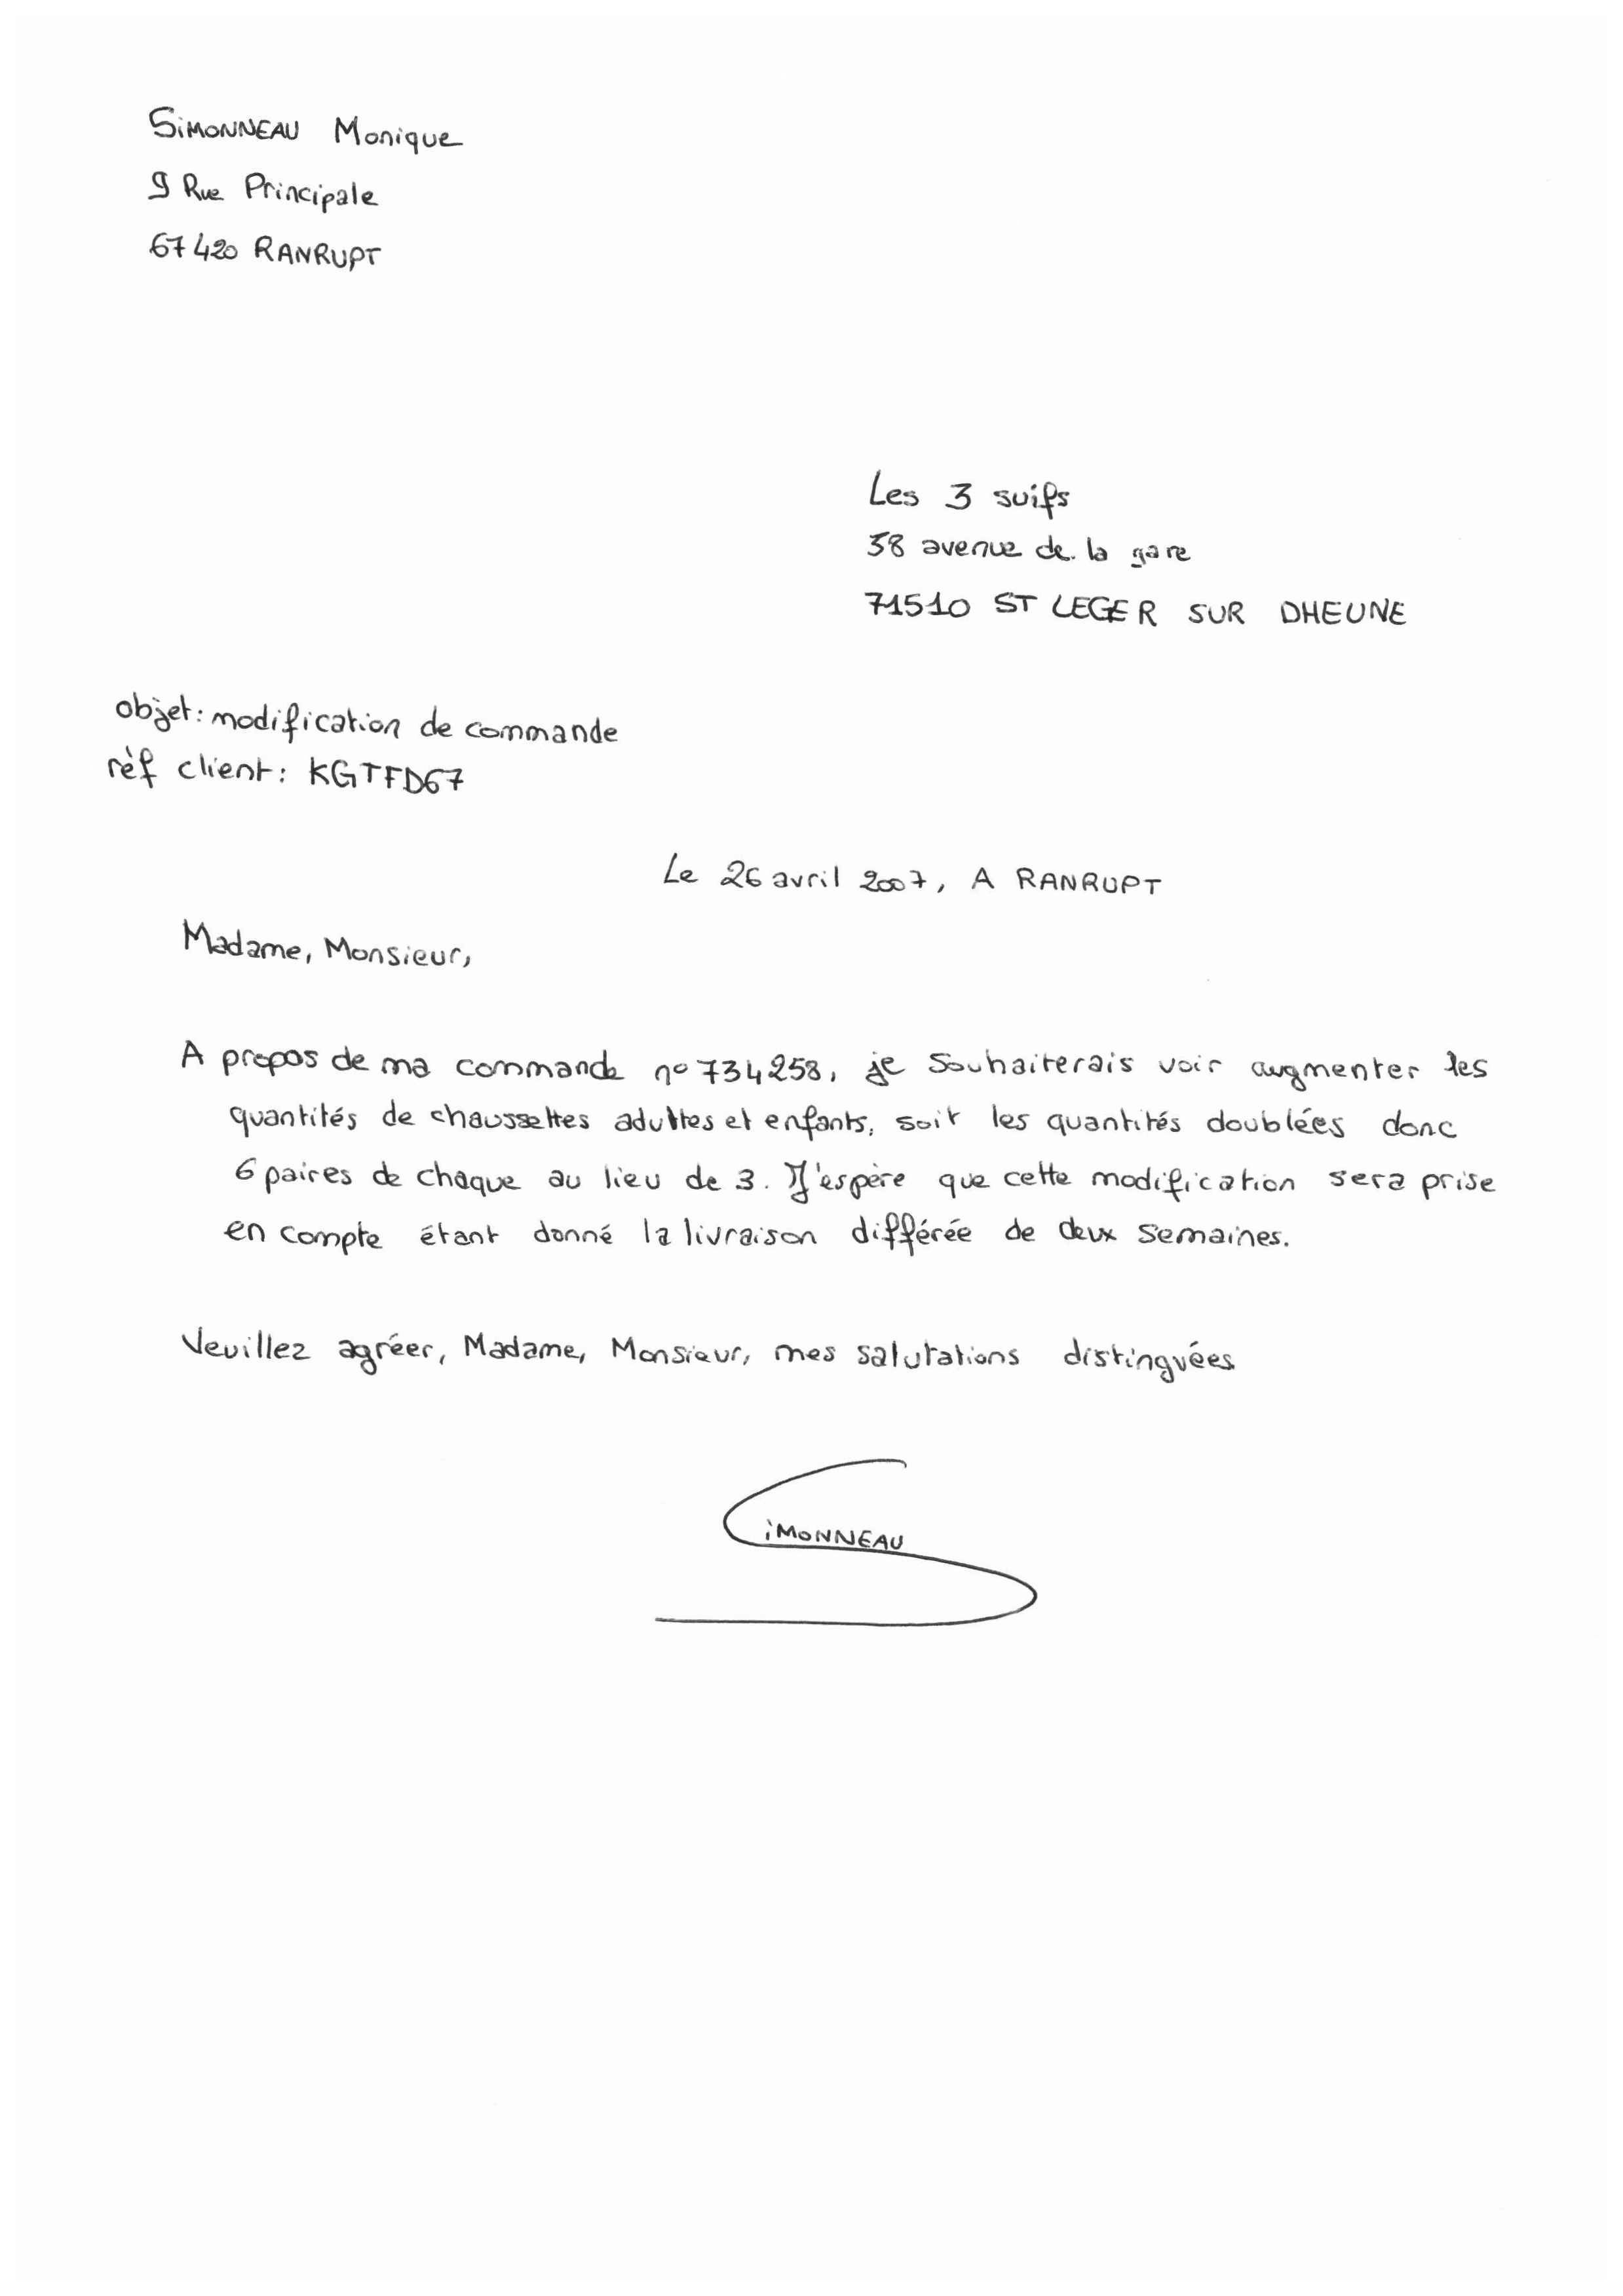 SIMONNEAU Monique
9 Rue Principale
67420 RANRUPT
Les 3 suifs
38 avenue de la gare
71510 ST LEGER SUR DHEUNE
objet: modification de commande
réf client: KGTFD67
Le 26 avril 2007, A RANRUPT
Madame, Monsieur,
A propos de ma commande n° 734258, je souhaiterais voir augmenter les
quantités de chaussettes adultes et enfants, soit les quantités doublées donc
6 paires de chaque au lieu de 3. J'espère que cette modification sera prise
en compte étant donné la livraison différée de deux semaines.
Veuillez agréer, Madame, Monsieur, mes salutations distinguées
SIMONNEAU